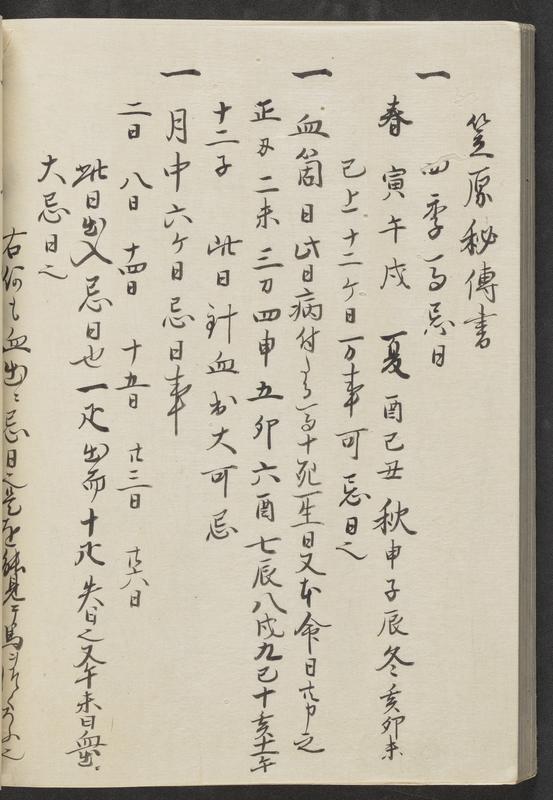 笠原秘傳書
一 四季馬忌日
春 寅午戌 夏 酉巳丑 秋 申子辰 冬 亥卯未
已上十二ケ日万事可忌日之
一 血箇日此日病付 馬十死一生日又 命日
正丑 二未 三 四申 五卯 六酉 七辰 八戌 九巳 十亥 十一午
十二子 此日針血 大可忌
一 月中六ケ日忌日事
二日 八日 十四日 十五日 廿三日 廿六日
此日出入忌日也 一疋出而十疋失日之又午未日血出
大忌日之
右何も血出 忌日之 馬